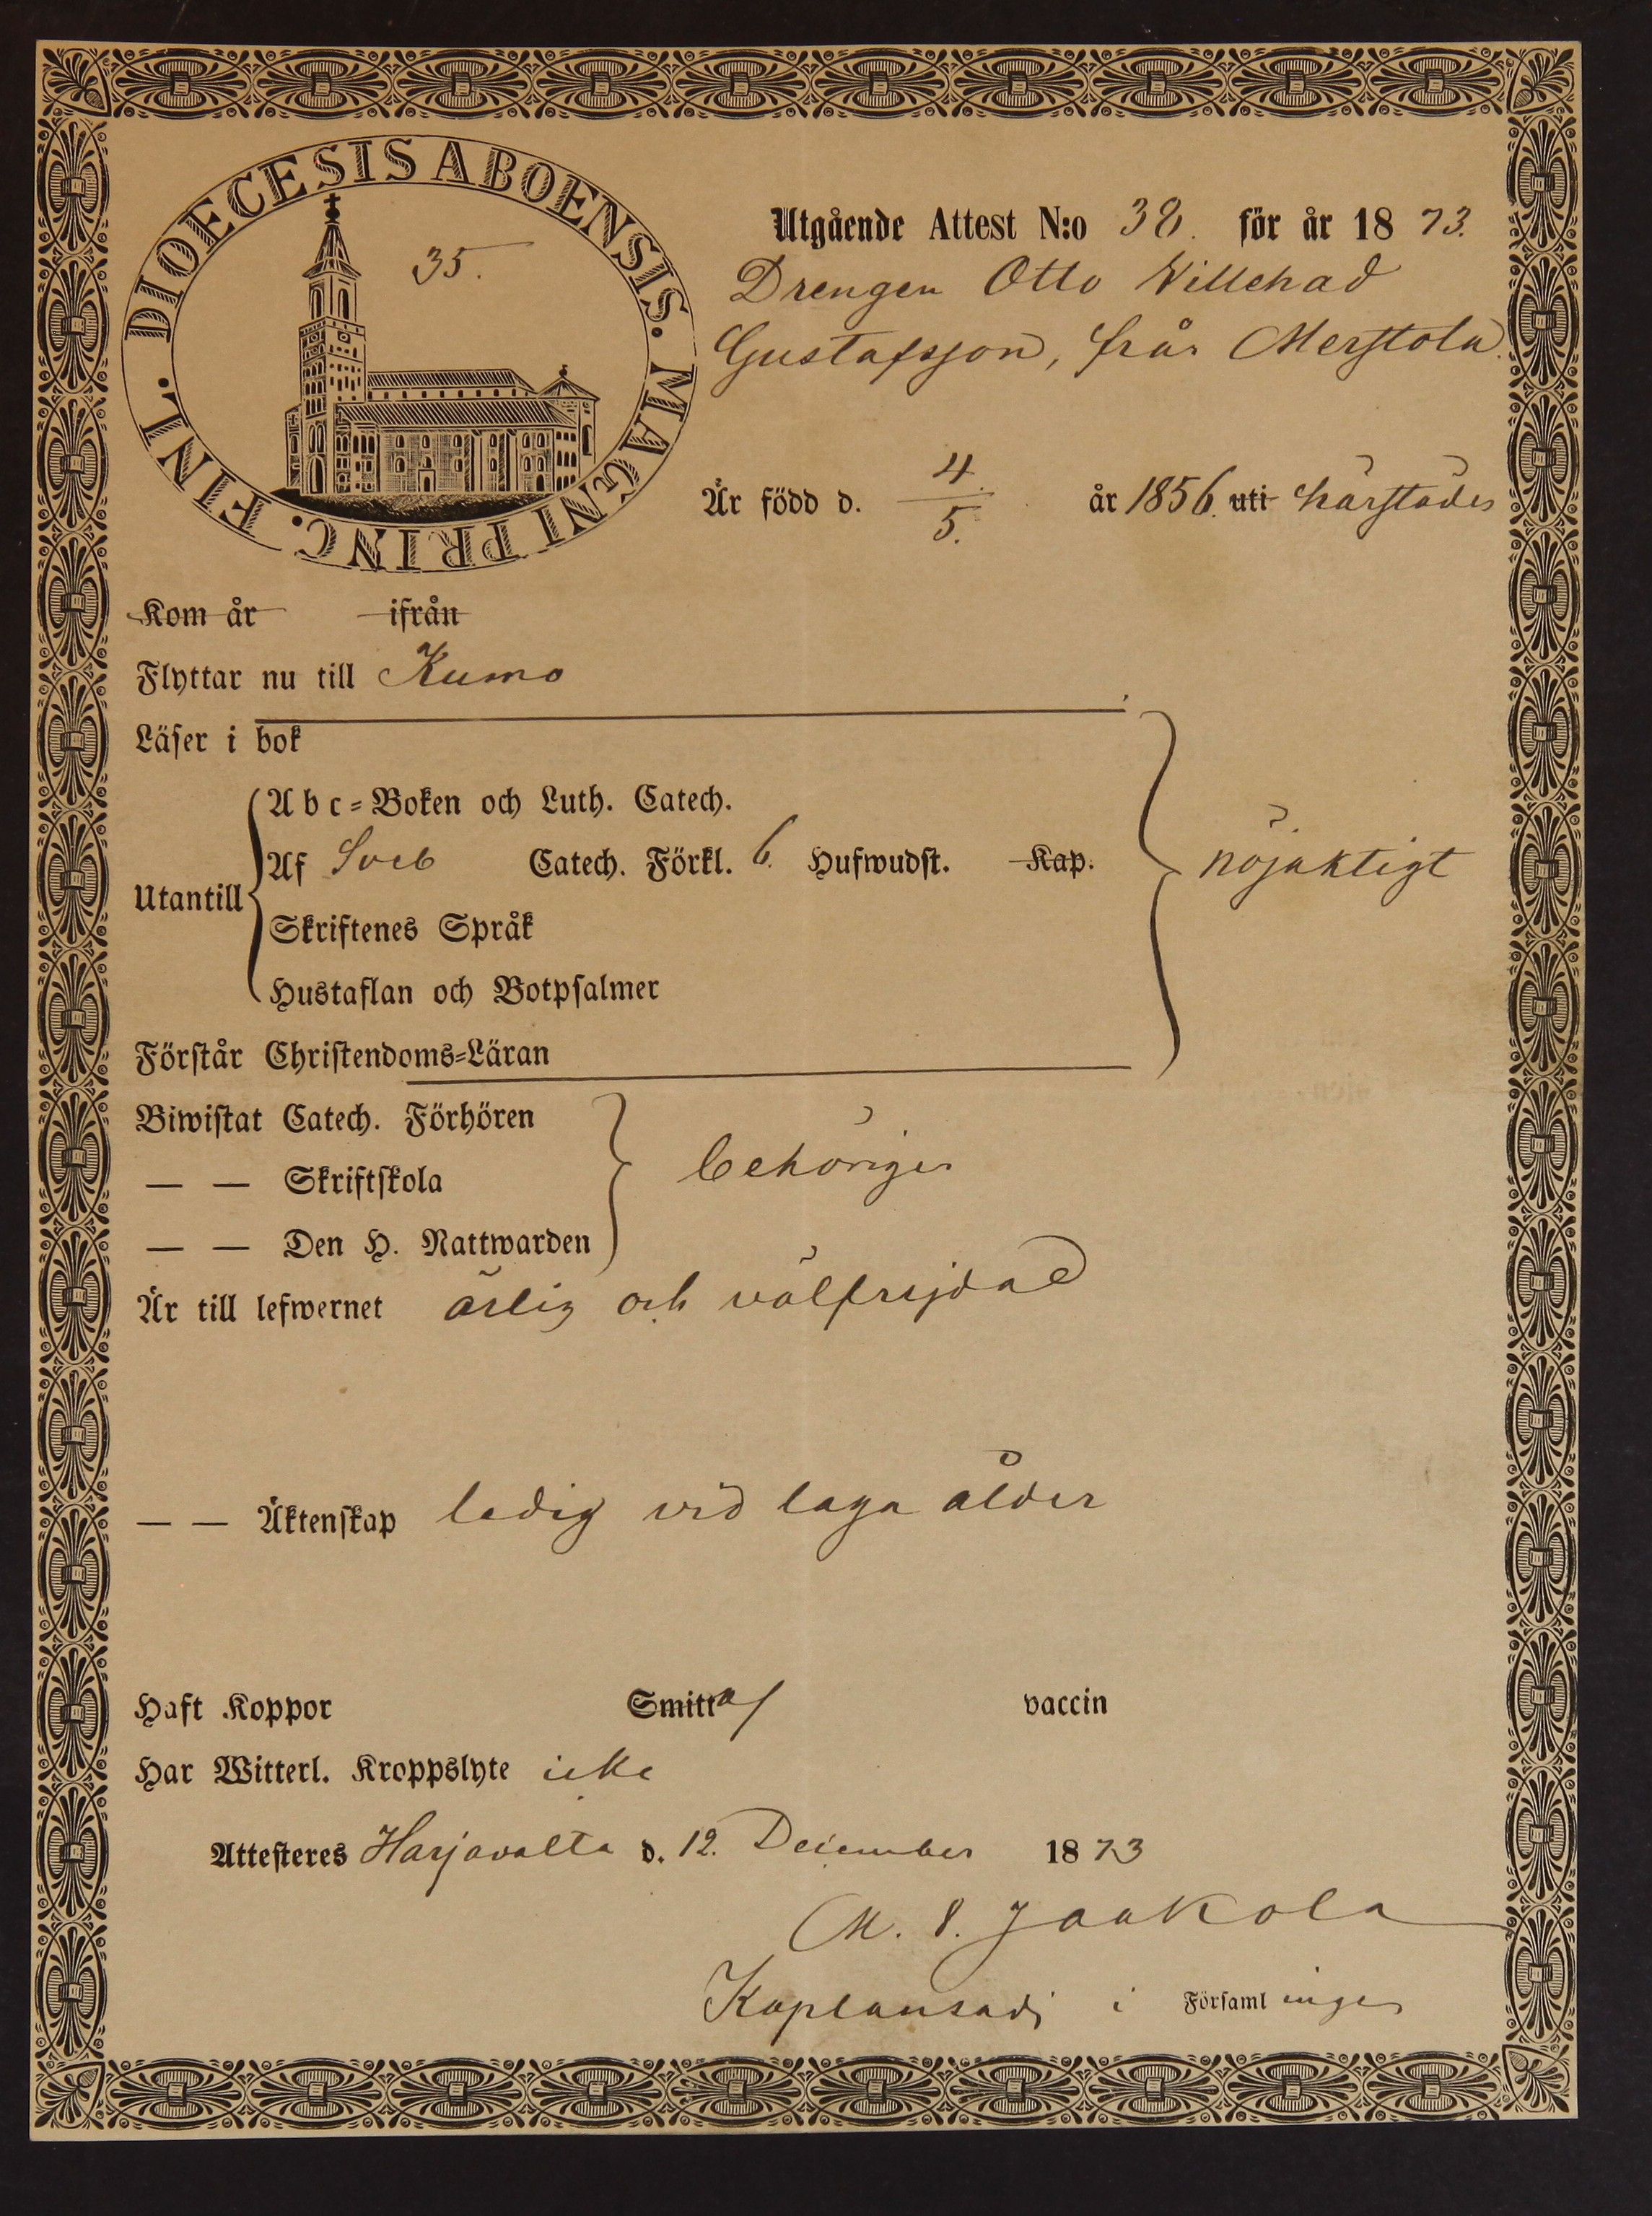 DIOECESIS ABOENSIS. MAGNI PRINC. FINL.
35.
Utgående Attest N:o 38. för år 1873.
Drengen Otto Villehad
Gustafsson, från Merstola.
Är född d. 4/5. år 1856. uti härstädes
Kom år ifrån
Flyttar nu till Kumo
Läser i bok
Utantill
Abc-Boken och Luth. Catech.
Af Sveb Catech. Förkl. 6. Hufwudst. Kap.
nöjaktigt
Skriftenes Språk
Hustaflan och Botpsalmer
Förstår Christendoms-Läran
Biwistat Catech. Förhören
— — Skriftskola behörigen
— — Den H. Nattwarden
Är till lefwernet ärlig och välfrejdad
— — Äktenskap ledig vid laga ålder
Haft Koppor Smitta/ vaccin
Har Witterl. Kroppslyte icke
Attesteres Harjavalta d. 12. December 1873
Jaakola
Kaplansadj i Församlingen